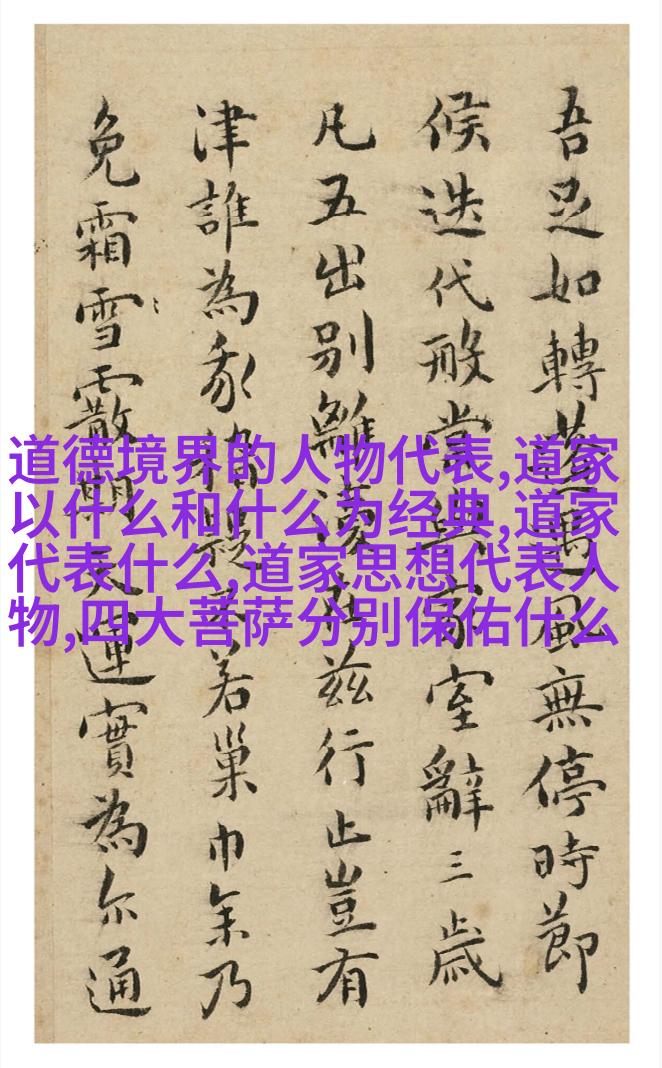 吾足如轉蓬遇風無停時節
候迭代般嘗與家室辭三歲
凡五出别離漫在茲行止豈有
津誰為若巢巾年乃
免霜雪霰天運實為尔通
道德境界的人物代表,道家
以什么和什么为经典,道家
代表什么,道家思想代表人
物,四大菩萨分别保佑什么